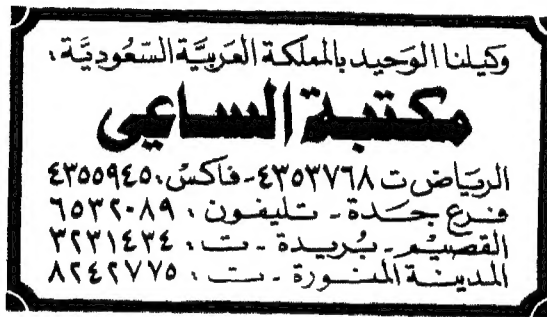 وكيلنا الوَحيد بالمملكة العَربيَّة السَّعُوديَّة :
مكتبة الساعي
الريَاض ت ٤٣٥٣٧٦٨ - فاكسْ : ٤٣٥٥٩٤٥
فرع جدة - تليفون : ٦٥٣٢٠٨٩
القصيم - بُريدة - ت : ٣٢٣١٤٣٤
المدينة المنورة - ت : ٨٢٤٢٧٧٥